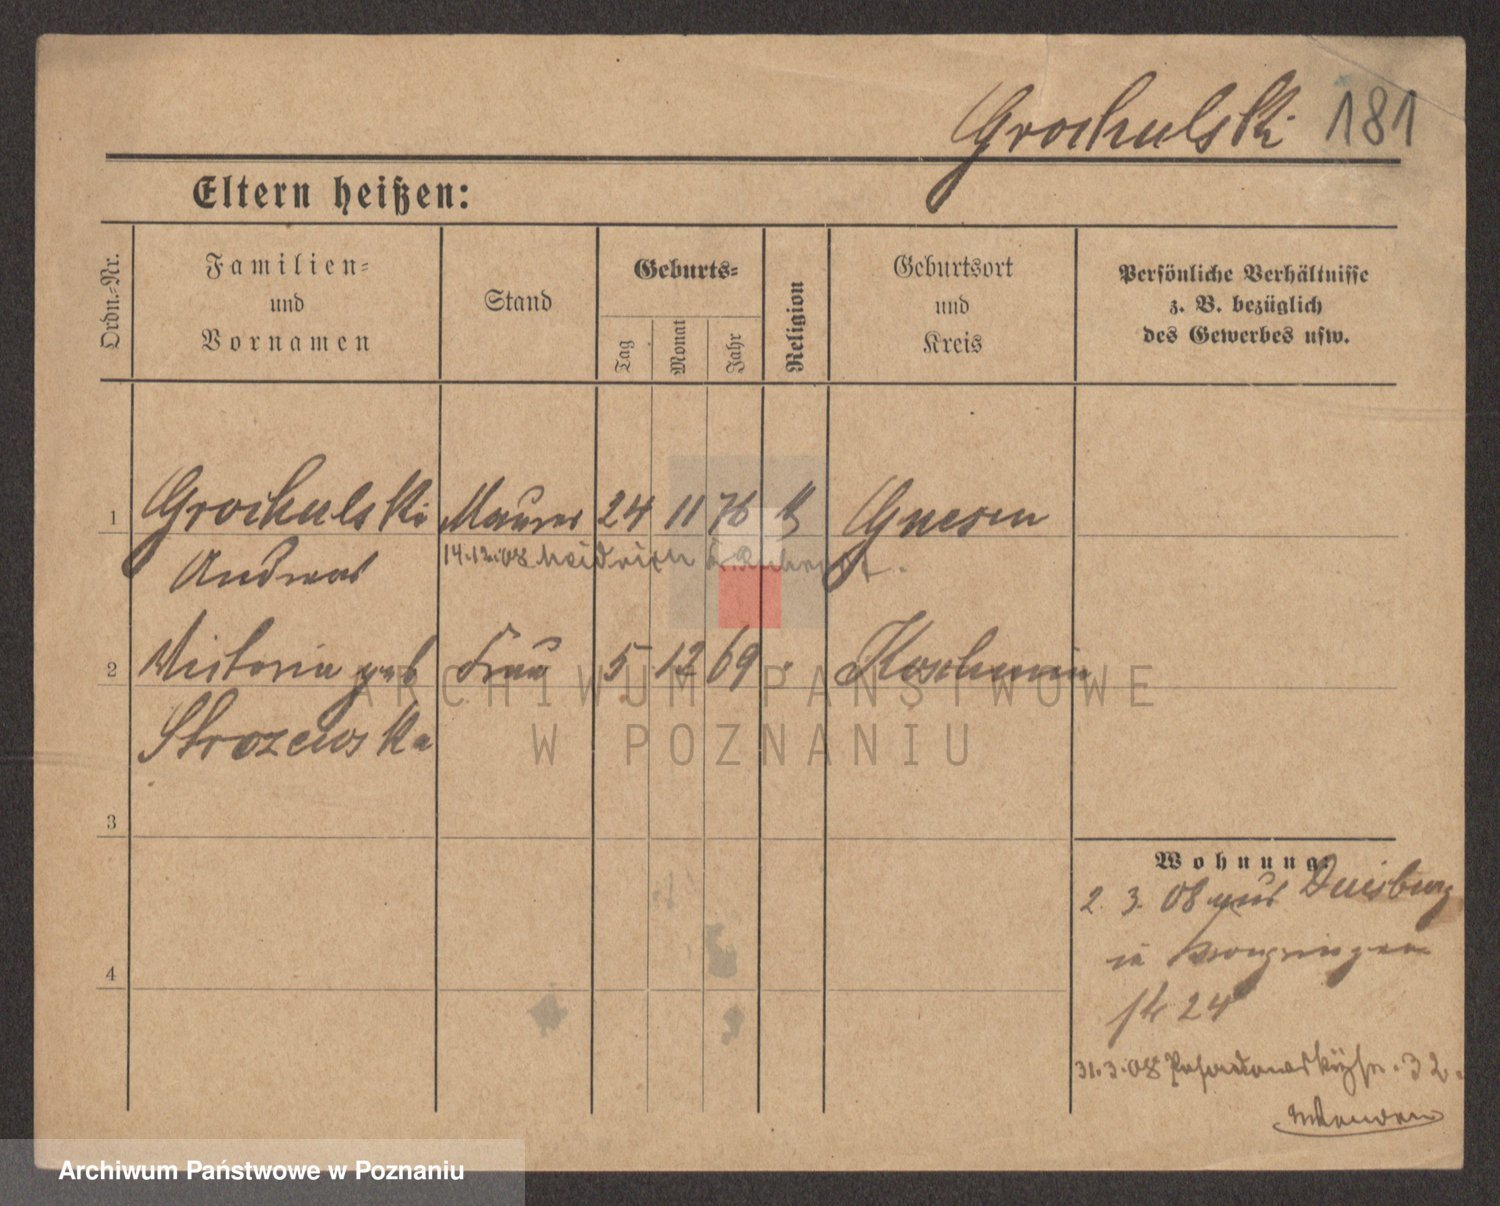 Grochulski 181
Eltern heißen:
Ordn.-Nr.
Familien- und Vornamen
Stand
Geburts-
Tag
Monat
Jahr
Religion
Geburtsort und Kreis
Persönliche Verhältnisse
z. B. bezüglich
des Gewerbes usw.
1 Grochulski Maurer 24 11 76 k Gnesen
Andreas 14.12.08
2 Victoria geb Frau 5 12 69 Koschmin
Strozewska
ARCHIWUM PAŃSTWOWE
W POZNANIU
3
Wohnung:
2. 3. 08 aus Duisburg
in
4
24
31.3.08 32.
Archiwum Państwowe w Poznaniu